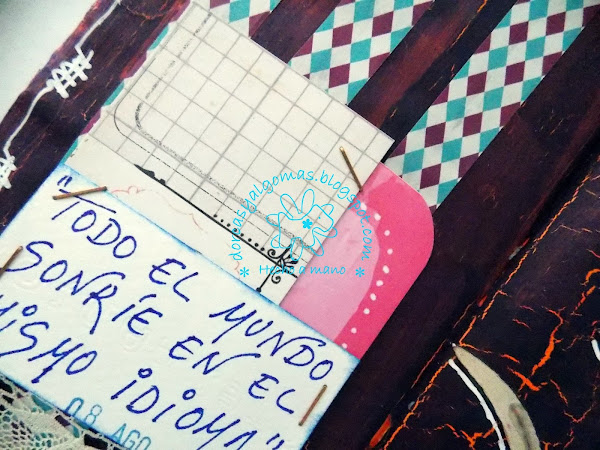 "TODO EL MUNDO
SONRÍE EN EL
MISMO IDIOMA"
08 AGO
donassyalgomas.blogspot.com
Hecho a mano